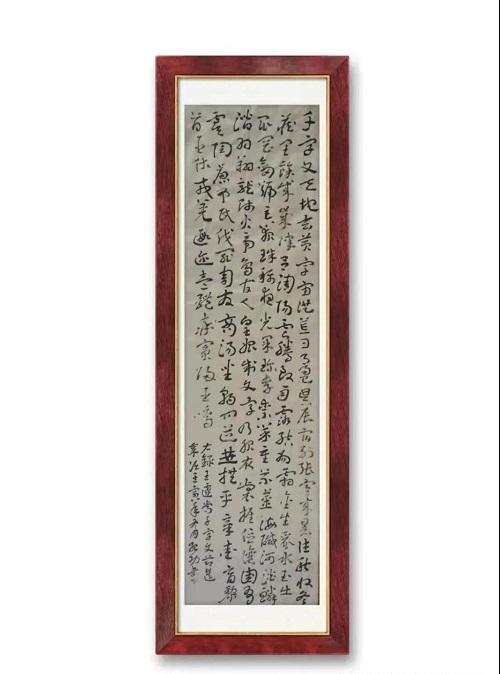 千字文天地玄黃宇宙洪荒日月盈昃辰宿列張寒來暑往秋收冬
藏閏餘成歲律呂調陽雲騰致雨露結為霜金生麗水玉出
崑岡劍號巨闕珠稱夜光果珍李柰菜重芥薑海鹹河淡鱗
潛羽翔龍師火帝鳥官人皇始制文字乃服衣裳推位讓國有
虞陶唐弔民伐罪周發商湯坐朝問道垂拱平章愛育黎
首臣伏戎羌遐邇壹體率賓歸王鳴
王蘧常千字文節選
歲次壬寅年月書